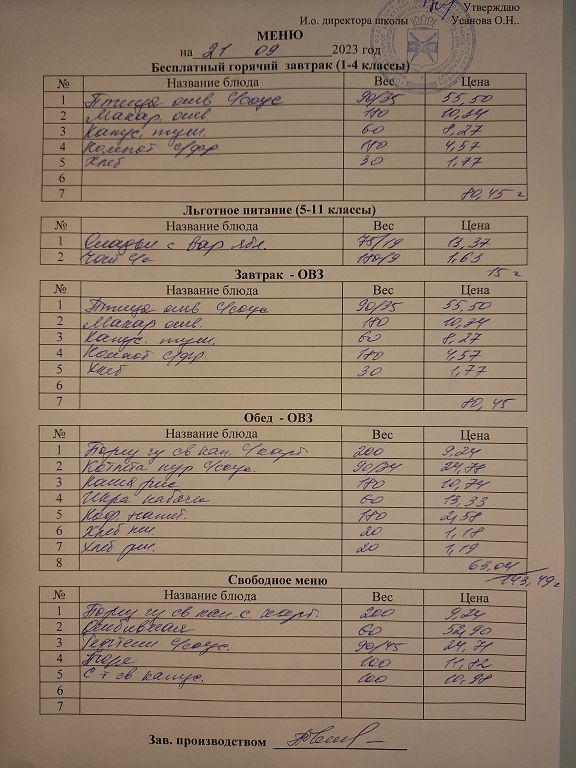 Утверждаю
И.о. директора школы Усанова О.Н..
МЕНЮ
на 21 09 2023 год
Бесплатный горячий завтрак (1-4 классы)
№ Название блюда Вес Цена
1 Птица отв 90/35 55,50
2 Макар. отв 180 10,34
3 Капус. туш. 60 8,27
4 Компот с/фр 180 4,57
5 Хлеб 30 1,77
6
7 80,45
Льготное питание (5-11 классы)
№ Название блюда Вес Цена
1 Оладьи с вар ябл. 75/19 13,37
2 Чай 180/9 1,63
15
Завтрак - ОВЗ
№ Название блюда Вес Цена
1 Птица отв 90/35 55,50
2 Макар отв. 180 10,34
3 Капус. туш. 60 8,27
4 Компот с/фр 180 4,57
5 Хлеб 30 1,77
6
7 80,45
Обед - ОВЗ
№ Название блюда Вес Цена
1 св кап. 200 9,24
2 Котлета кур 90/34 24,78
3 Каша рис 180 10,74
4 Икра кабачк 60 13,33
5 180 2,58
6 Хлеб 20 1,18
7 Хлеб рж. 20 1,19
8 63,04
143,49
Свободное меню
№ Название блюда Вес Цена
1 св кап. с 200 9,24
2 Отбивная 60 52,90
3 Тефтели 90/45 24,78
4 Пюре 100 11,82
5 св капус. 100 10,98
6
7
Зав. производством